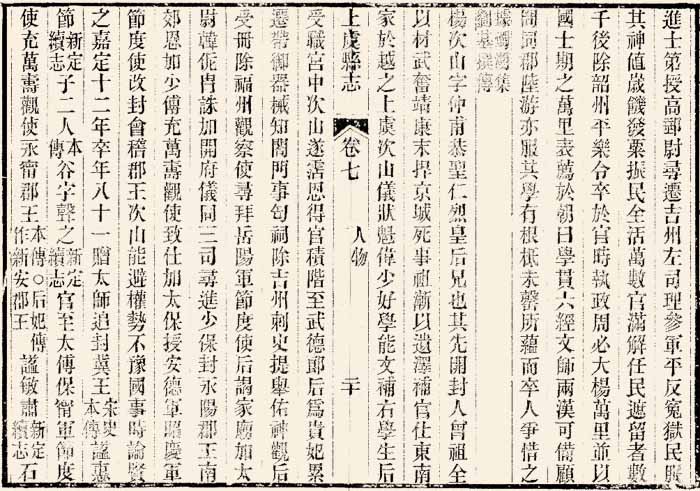 進士第授高郵尉尋遷吉州左司理參軍平反冤獄民服
其神值歲饑發粟振民全活萬數官滿解任民遮留者數
千後除韶州平樂令卒於官時執政周必大楊萬里並以
國士期之萬里表薦於朝曰學貫六經文師兩漢可備顧
問同郡陸游亦服其學有根柢未罄所蘊而卒人爭惜之
楊次山字仲甫恭聖仁烈皇后兄也其先開封人曾祖全
以材武奮靖康末捍京城死事祖漸以遺澤補官仕東南
家於越之上虞次山儀狀魁偉少好學能文補右學生后
上虞縣志
卷七
人物
二十
受職宮中次山遂霑恩得官積階至武德郎后爲貴妃累
遷帶御器械知閤門事匄祠除吉州刺史提舉佑神觀后
受冊除福州觀察使尋拜岳陽軍節度使后謁家廟加太
尉韓侂冑誅加開府儀同三司尋進少保封永陽郡王南
郊恩加少傅充萬壽觀使致仕加太保授安德軍昭慶軍
節度使改封會稽郡王次山能避權勢不豫國事時論賢
之嘉定十二年卒年八十一贈太師追封冀王宋史本傳諡惠
節新定續志子二人本傳谷字聲之新定續志官至太傅保甯軍節度
使充萬壽觀使永甯郡王本傳○后妃傳作新安郡王諡敏肅新定續志石